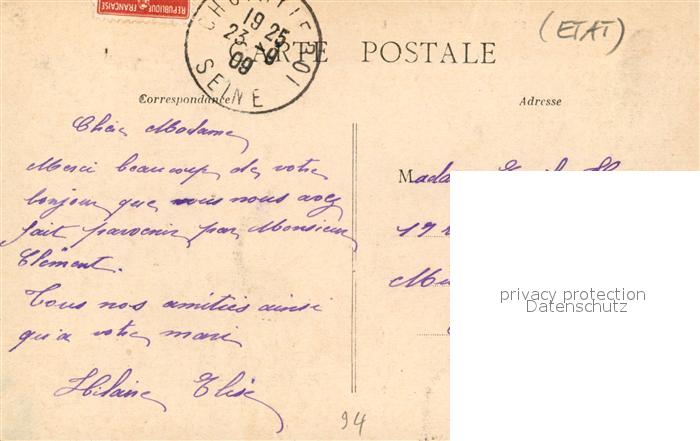 REPUBLIQUE FRANÇAISE
(ETAT)
CHOISY-LE-ROI
19 25
23 -9
09
SEINE
CARTE POSTALE
Correspondance
Adresse
Chère Madame
Merci beaucoup de votre
bonjour que vous nous avez
fait parvenir par Monsieur
Clèment.
Tous nos amitiés ainsi
qu'a votre mari
Hilaire Elise
94
Mada
19
privacy protection
Datenschutz